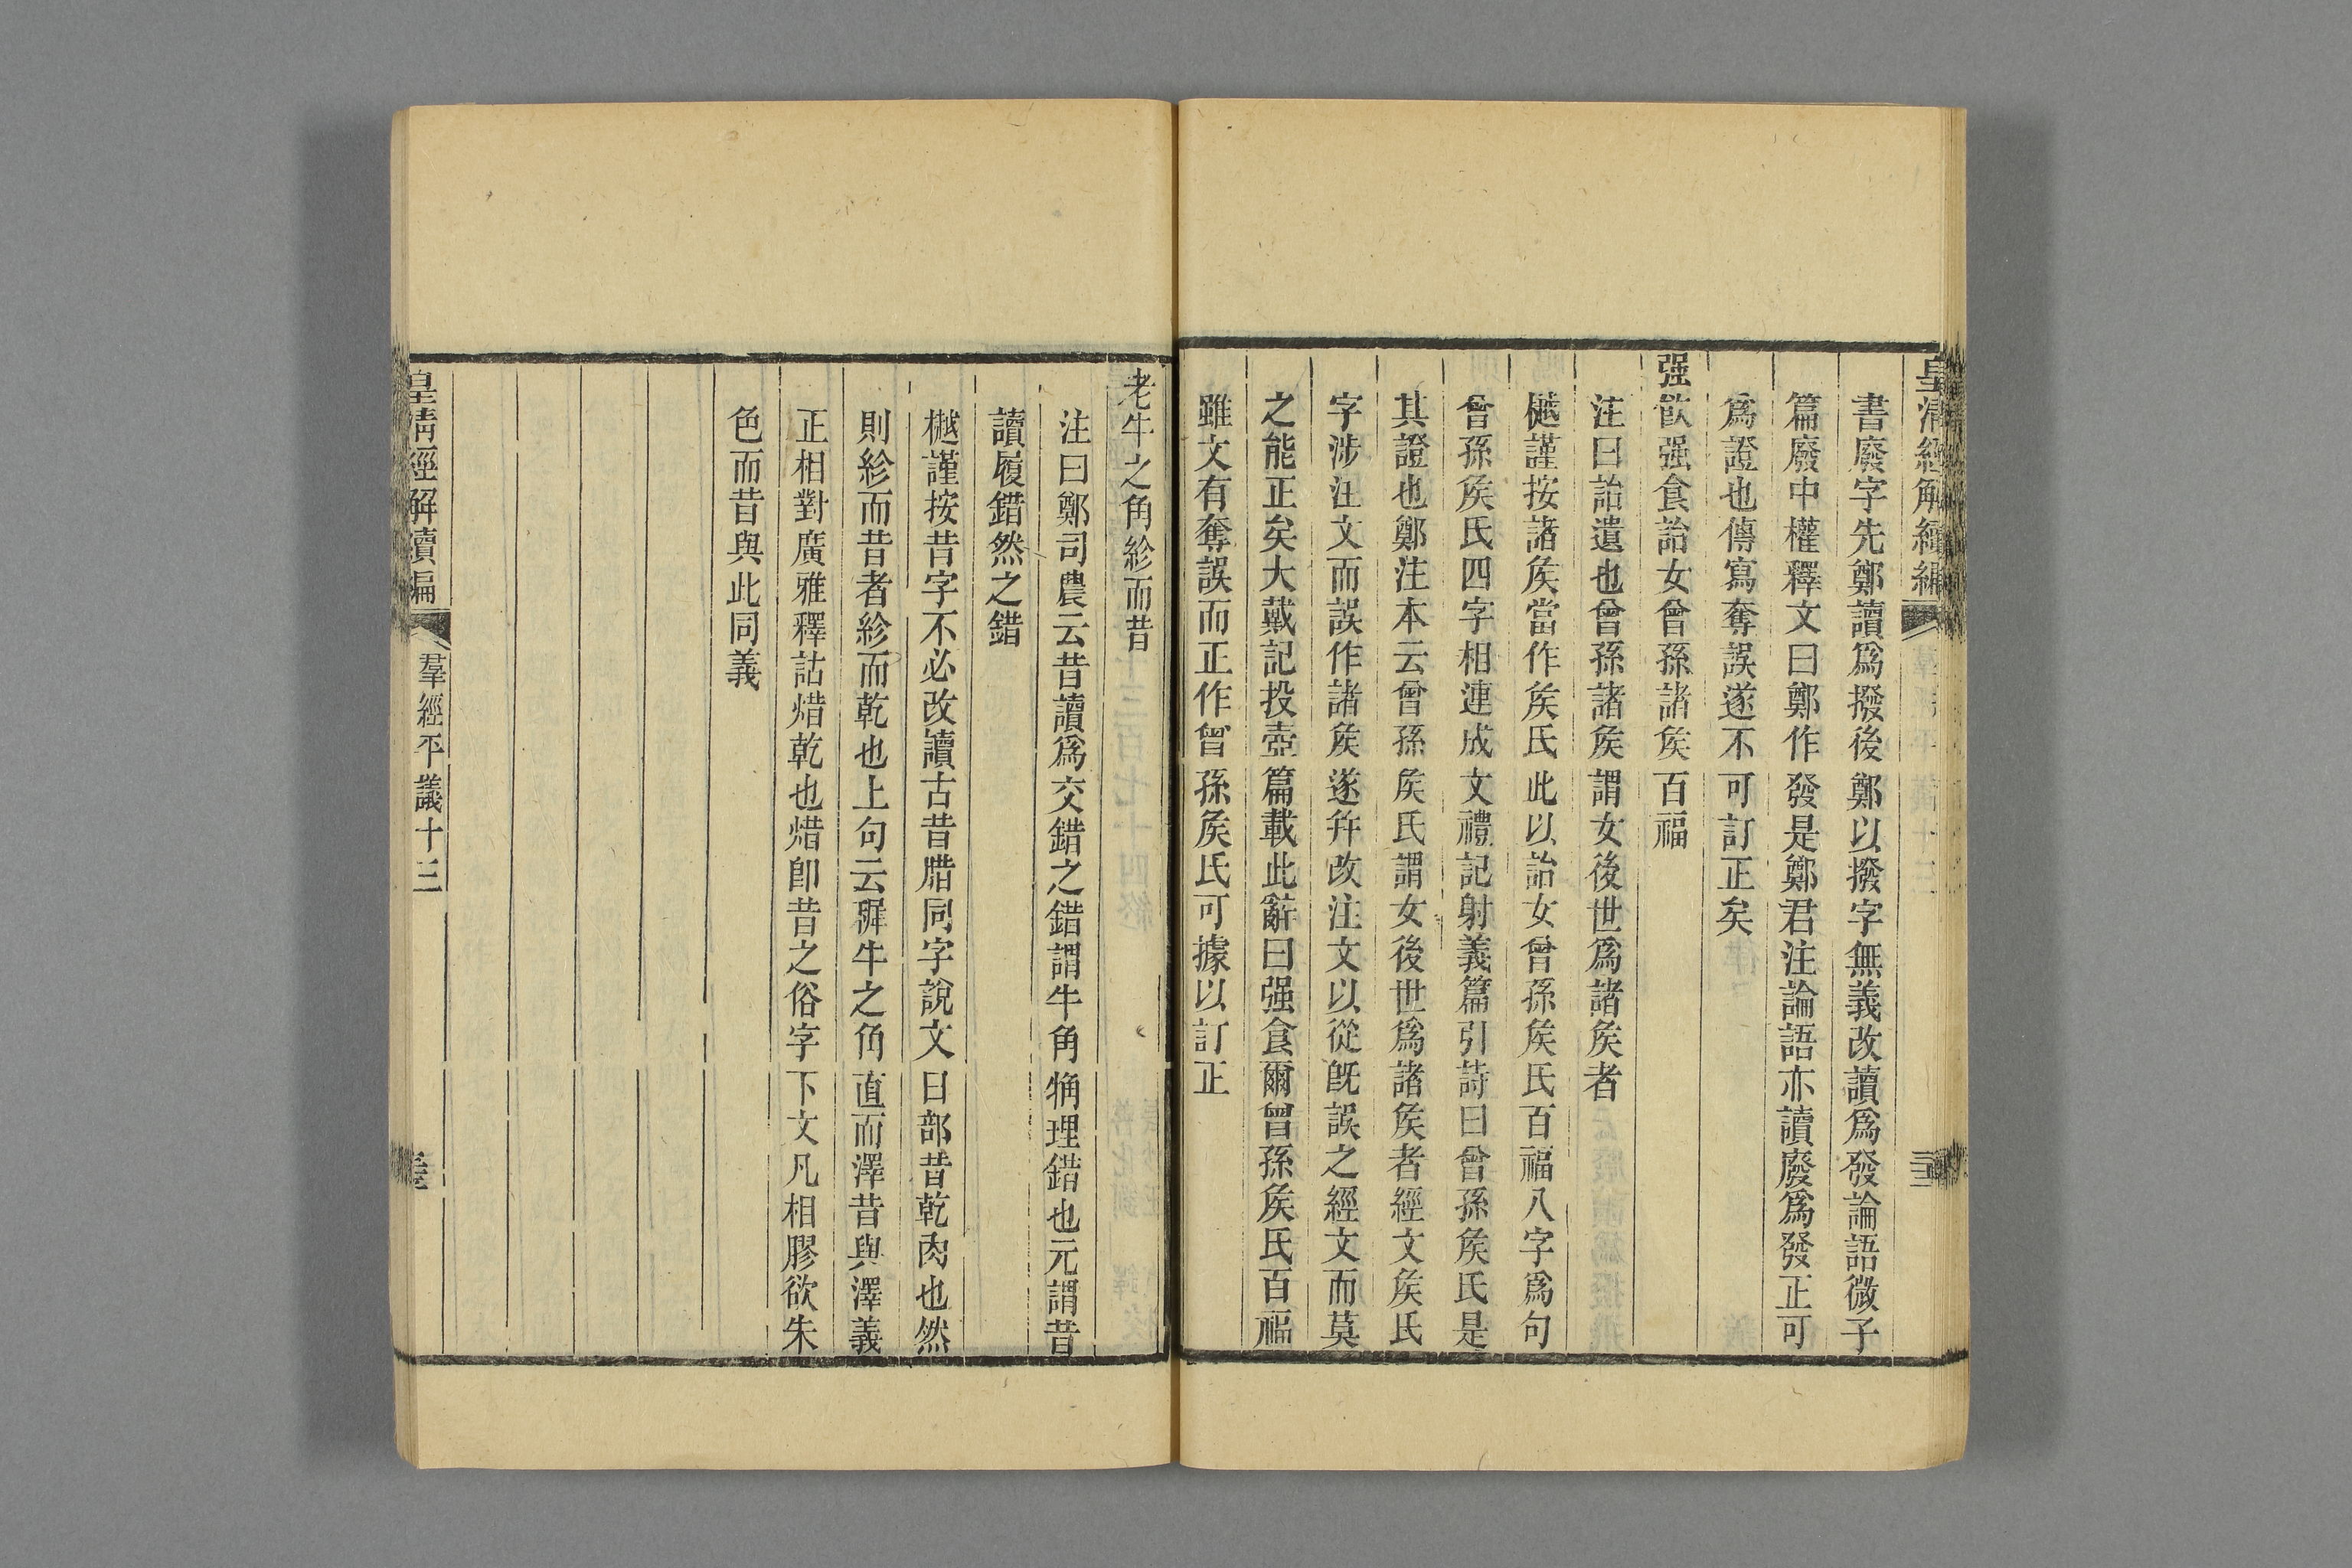 皇清經解續編
書廢字先鄭讀爲撥後鄭以撥字無義改讀爲發論語微子
篇廢中權釋文曰鄭作發是鄭君注論語亦讀廢爲發正可
爲證也傳寫奪誤遂不可訂正矣
强飮强食詒女曾孫諸矦百福
注曰詒遺也曾孫諸矦謂女後世爲諸矦者
樾謹按諸矦當作矦氏此以詒女曾孫矦氏百福八字爲句
曾孫矦氏四字相連成文禮記射義篇引詩曰曾孫矦氏是
其證也鄭注本云曾孫矦氏謂女後世爲諸矦者經文矦氏
字涉注文而誤作諸矦遂幷改注文以從旣誤之經文而莫
之能正矣大戴記投壺篇載此辭曰强食爾曾孫矦氏百福
雖文有奪誤而正作曾孫矦氏可據以訂正
老牛之角紾而昔
注曰鄭司農云昔讀爲交錯之錯謂牛角觕理錯也元謂昔
讀履錯然之錯
樾謹按昔字不必改讀古昔腊同字說文日部昔乾肉也然
則紾而昔者紾而乾也上句云稺牛之角直而澤昔與澤義
正相對廣雅釋詁焟乾也焟卽昔之俗字下文凡相膠欲朱
色而昔與此同義
皇清經解續編
羣經平議十三